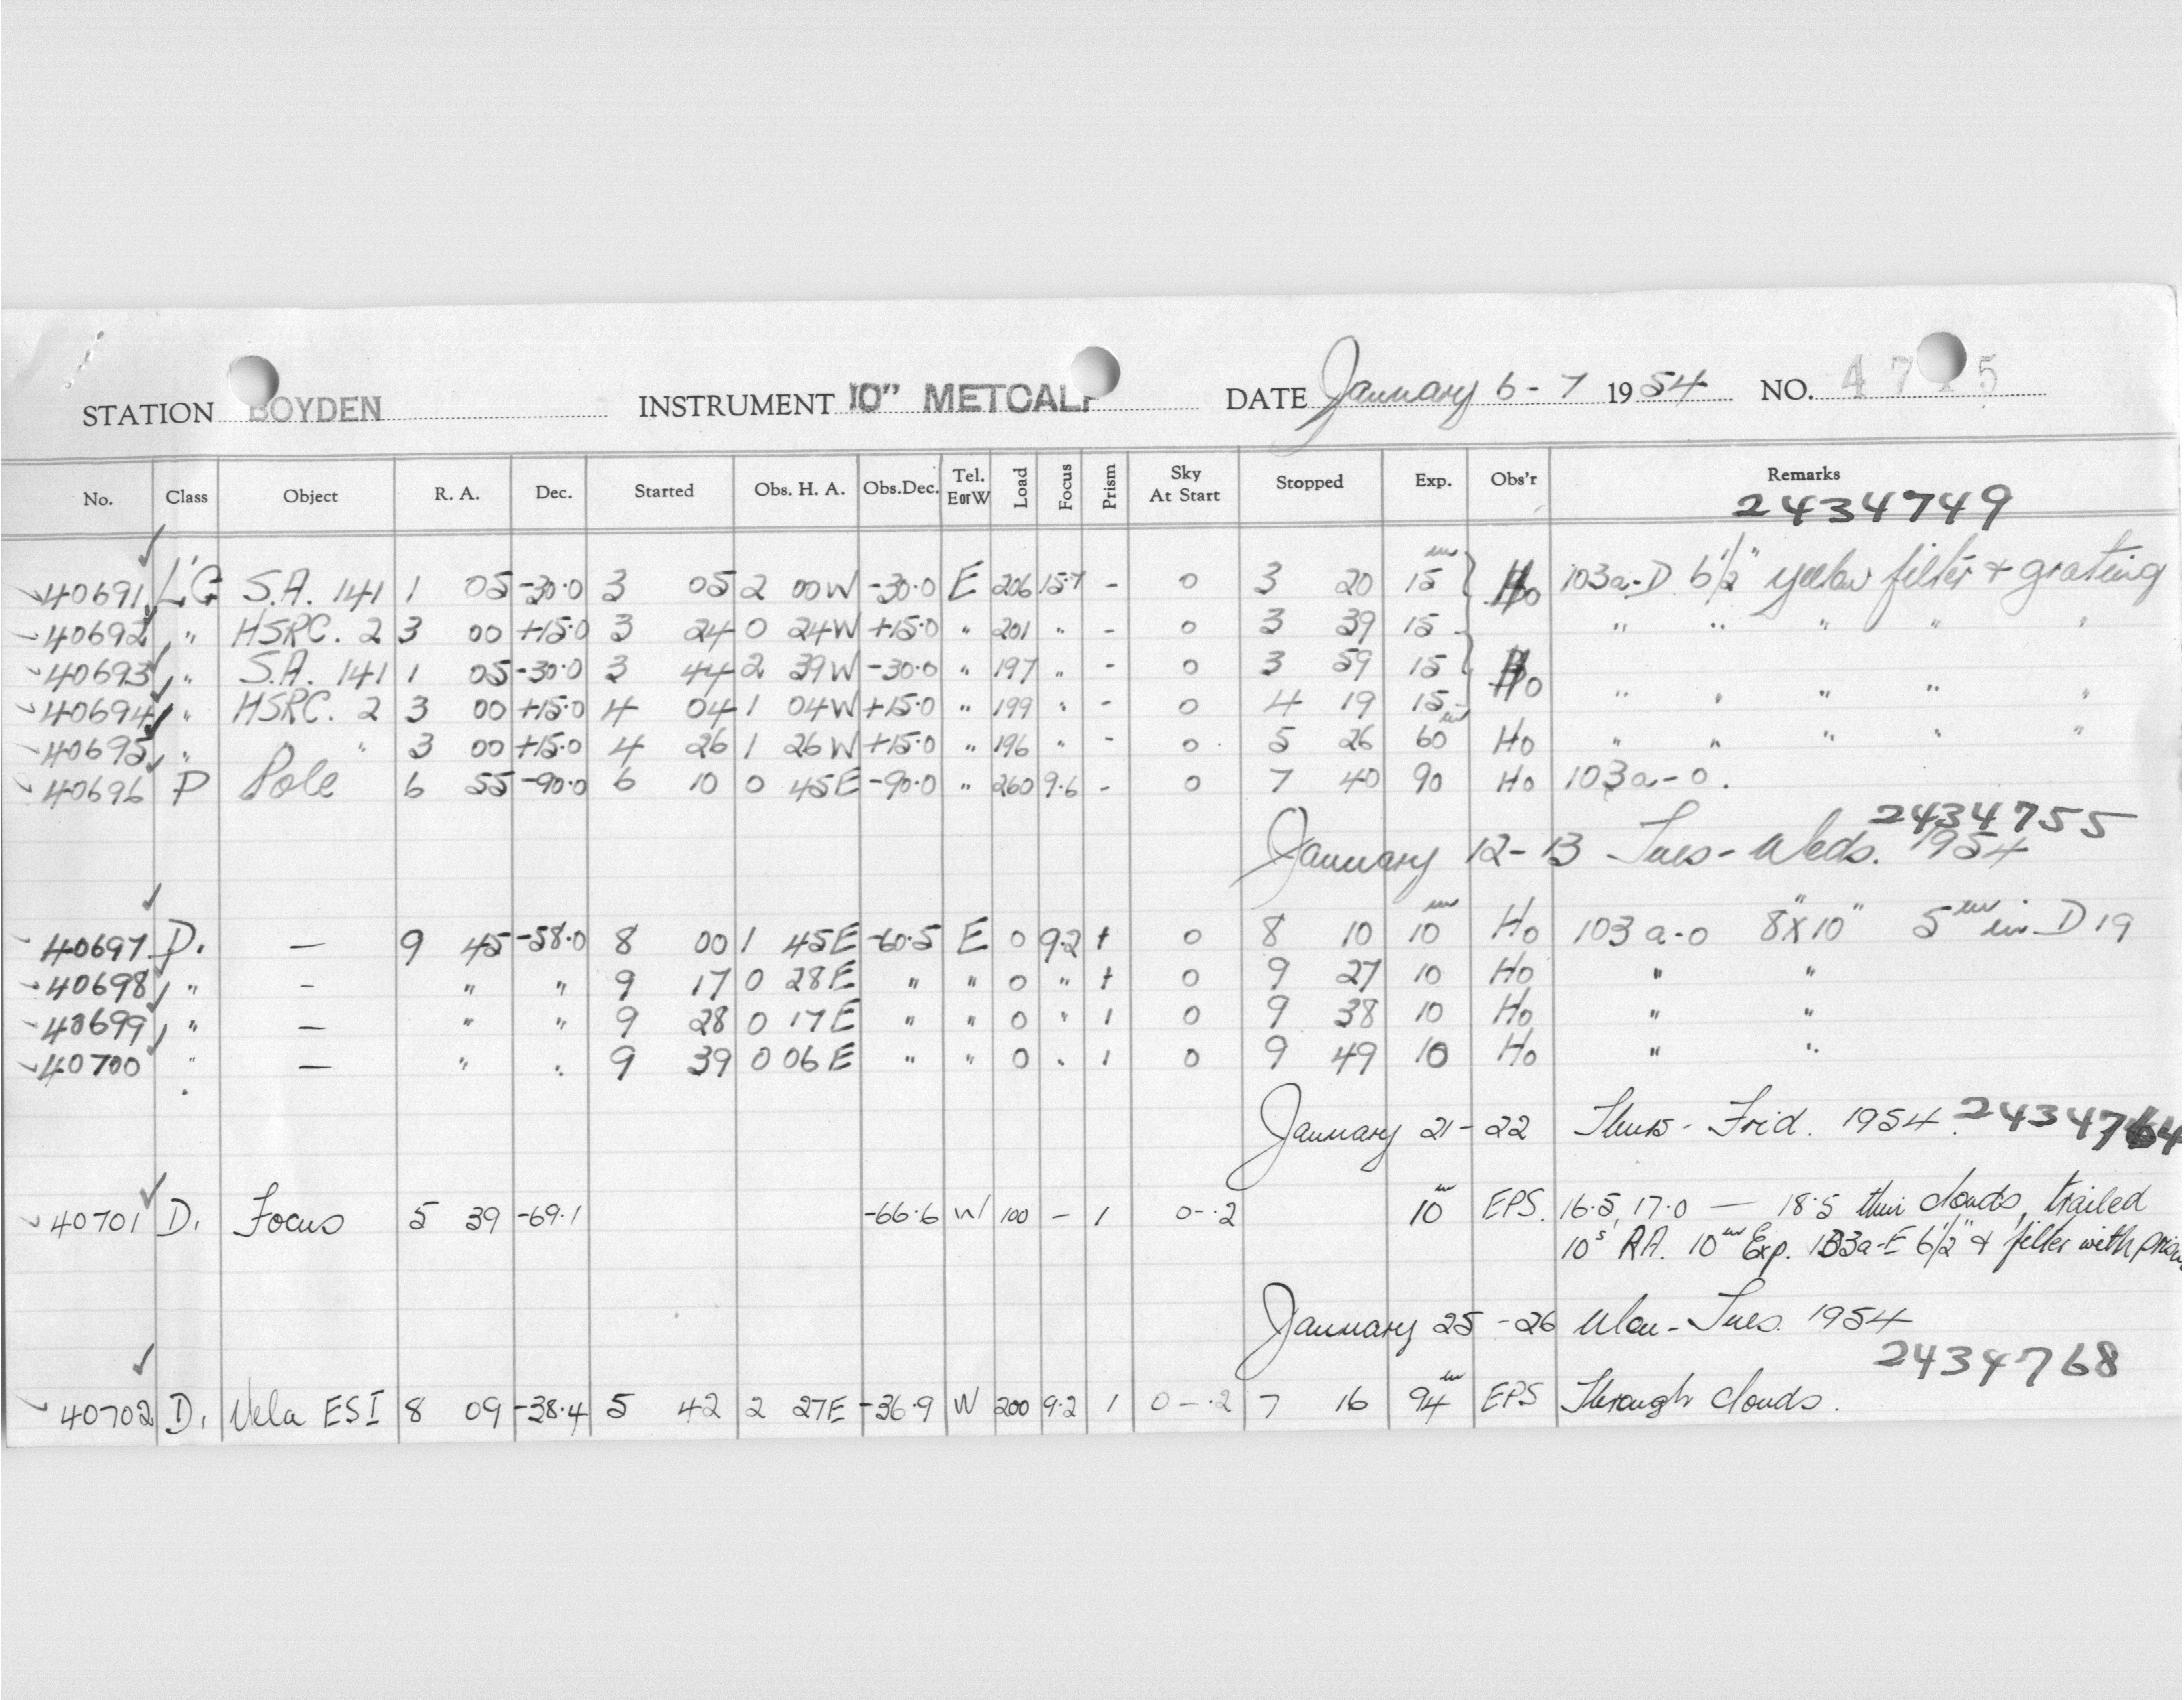 STATION BOYDEN INSTRUMENT 10" METCALF DATE January 6-7 1954 NO. 47 5
No. Class Object R. A. Dec. Started Obs. H. A. Obs.Dec. Tel. EorW Load Focus Prism Sky At Start Stopped Exp. Obs'r Remarks
2434749
40691 L'G S.A. 141 1 05 -30.0 3 05 2 00W -30.0 E 206 15.7 - 0 3 20 15m Ho 103a-D 6½" yellow filter + grating
40692 " HSRC. 2 3 00 +15.0 3 24 0 24W +15.0 " 201 " - 0 3 39 15 " " " " "
40693 " S.A. 141 1 05 -30.0 3 44 2 39W -30.0 " 197 " - 0 3 59 15 Ho
40694 " HSRC. 2 3 00 +15.0 4 04 1 04W +15.0 " 199 " - 0 4 19 15 " " " " "
40695 " " 3 00 +15.0 4 26 1 26W +15.0 " 196 " - 0 5 26 60m Ho " " " " "
40696 P Pole 6 55 -90.0 6 10 0 45E -90.0 " 260 9.6 - 0 7 40 90 Ho 103a-0.
2434755
January 12-13 Tues-Weds. 1954
40697 D. — 9 45 -58.0 8 00 1 45E -60.5 E 0 9.2 1 0 8 10 10m Ho 103a-0 8"x10" 5m in D19
40698 " - " " 9 17 0 28E " " 0 " 1 0 9 27 10 Ho " "
40699 " — " " 9 28 0 17E " " 0 " 1 0 9 38 10 Ho " "
40700 " — " " 9 39 0 06E " " 0 " 1 0 9 49 10 Ho " "
January 21-22 Thurs-Frid. 1954. 2434764
40701 D. Focus 5 39 -69.1 -66.6 W 100 - 1 0-.2 10m EPS. 16.5, 17.0 — 18.5 thin clouds, trailed
10s RA. 10m Exp. 103a-E 6½" & filter with prism
January 25-26 Mon-Tues. 1954
2434768
40702 D. Vela ES I 8 09 -38.4 5 42 2 27E -36.9 W 200 9.2 1 0-.2 7 16 94m EPS Through clouds.